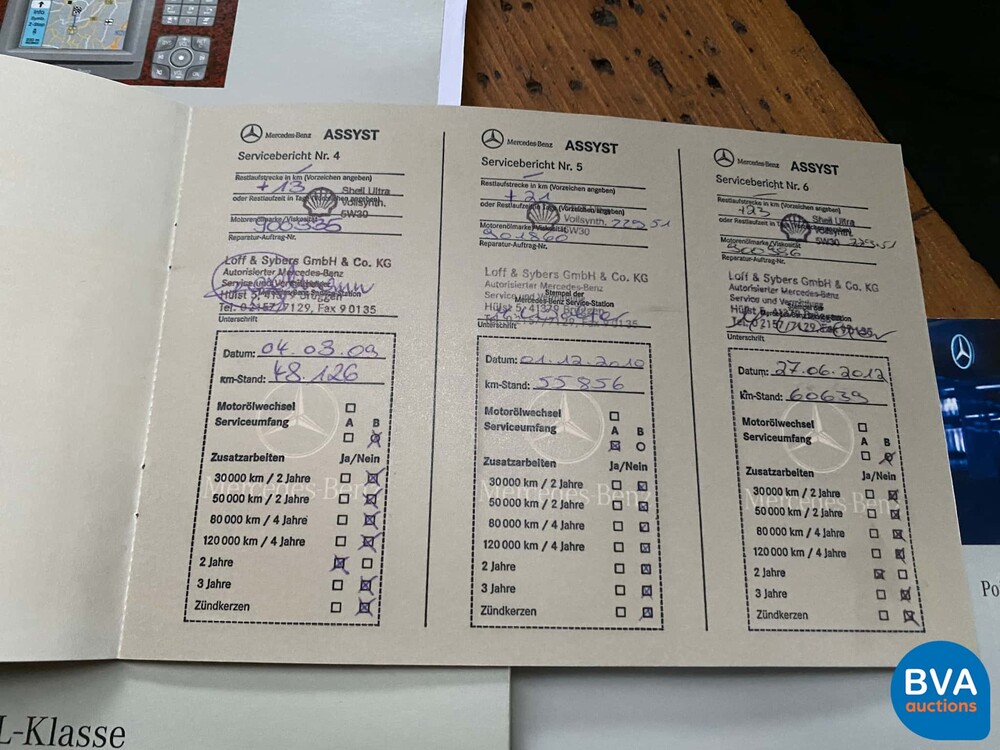 Mercedes-Benz ASSYST
Servicebericht Nr. 4
Restlaufstrecke in km (Vorzeichen angeben)
+ 13
oder Restlaufzeit in Tagen (Vorzeichen angeben)
Shell Ultra
Vollsynth.
5W30
Motorenölmarke/Viskosität
900366
Reparatur-Auftrag-Nr.
Loff & Sybers GmbH & Co. KG
Autorisierter Mercedes-Benz
Service und Vermittlung
Hülst 5, 41379 Brüggen
Tel. 02157/7129, Fax 90135
Unterschrift
Datum: 04.03.09
km-Stand: 48.126
Motorölwechsel
Serviceumfang A B
Zusatzarbeiten Ja/Nein
30000 km / 2 Jahre
50000 km / 2 Jahre
80000 km / 4 Jahre
120000 km / 4 Jahre
2 Jahre
3 Jahre
Zündkerzen
Mercedes-Benz ASSYST
Servicebericht Nr. 5
Restlaufstrecke in km (Vorzeichen angeben)
+ 21
oder Restlaufzeit in Tagen (Vorzeichen angeben)
Vollsynth. 229 51
5W30
Motorenölmarke/Viskosität
901860
Reparatur-Auftrag-Nr.
Loff & Sybers GmbH & Co. KG
Autorisierter Mercedes-Benz
Stempel der
Mercedes-Benz Service-Station
Hülst 5, 41379 Brüggen
Unterschrift
Datum: 01.12.2010
km-Stand: 55856
Motorölwechsel
Serviceumfang A B
Zusatzarbeiten Ja/Nein
30000 km / 2 Jahre
50000 km / 2 Jahre
80000 km / 4 Jahre
120000 km / 4 Jahre
2 Jahre
3 Jahre
Zündkerzen
Mercedes-Benz ASSYST
Servicebericht Nr. 6
Restlaufstrecke in km (Vorzeichen angeben)
+23
oder Restlaufzeit in Tagen
Shell Ultra
Vollsynth.
5W30 229.51
Motorenölmarke/Viskosität
Reparatur-Auftrag-Nr.
Loff & Sybers GmbH & Co. KG
Autorisierter Mercedes-Benz
Service und Vermittlung
Stempel der
Tel. 02157/7129, Fax 90135
Unterschrift
Datum: 27.06.2012
km-Stand: 60639
Motorölwechsel
Serviceumfang A B
Zusatzarbeiten Ja/Nein
30000 km / 2 Jahre
50000 km / 2 Jahre
80000 km / 4 Jahre
120000 km / 4 Jahre
2 Jahre
3 Jahre
Zündkerzen
L-Klasse
Po
BVA
auctions